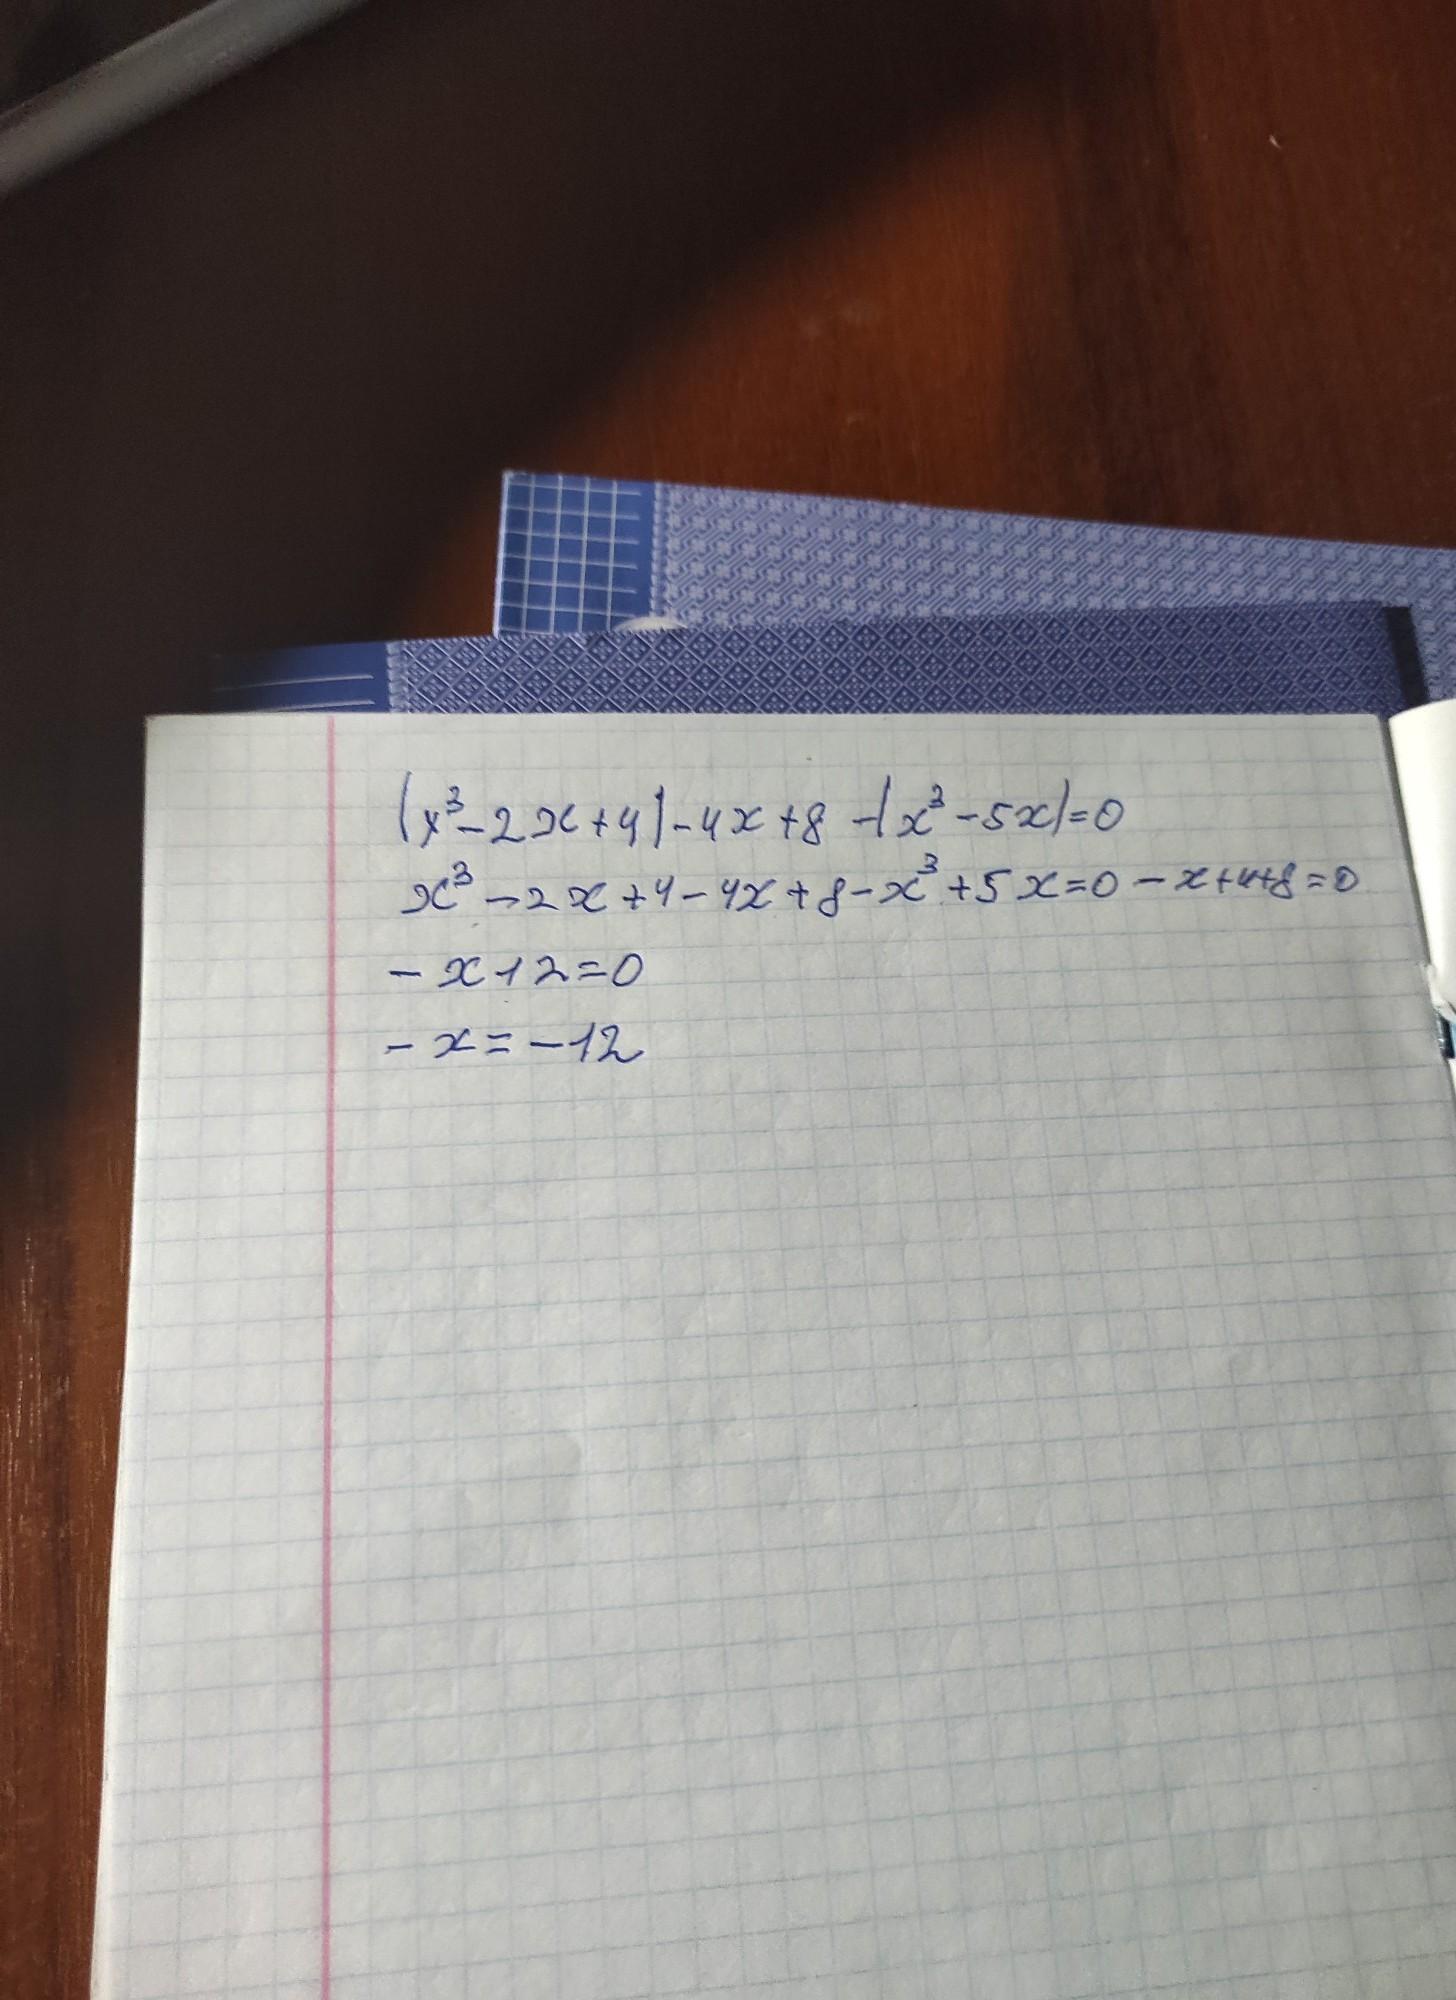 (x³-2x+4)-4x+8-(x³-5x)=0
x³-2x+4-4x+8-x³+5x=0 -x+4+8=0
-x+12=0
-x=-12